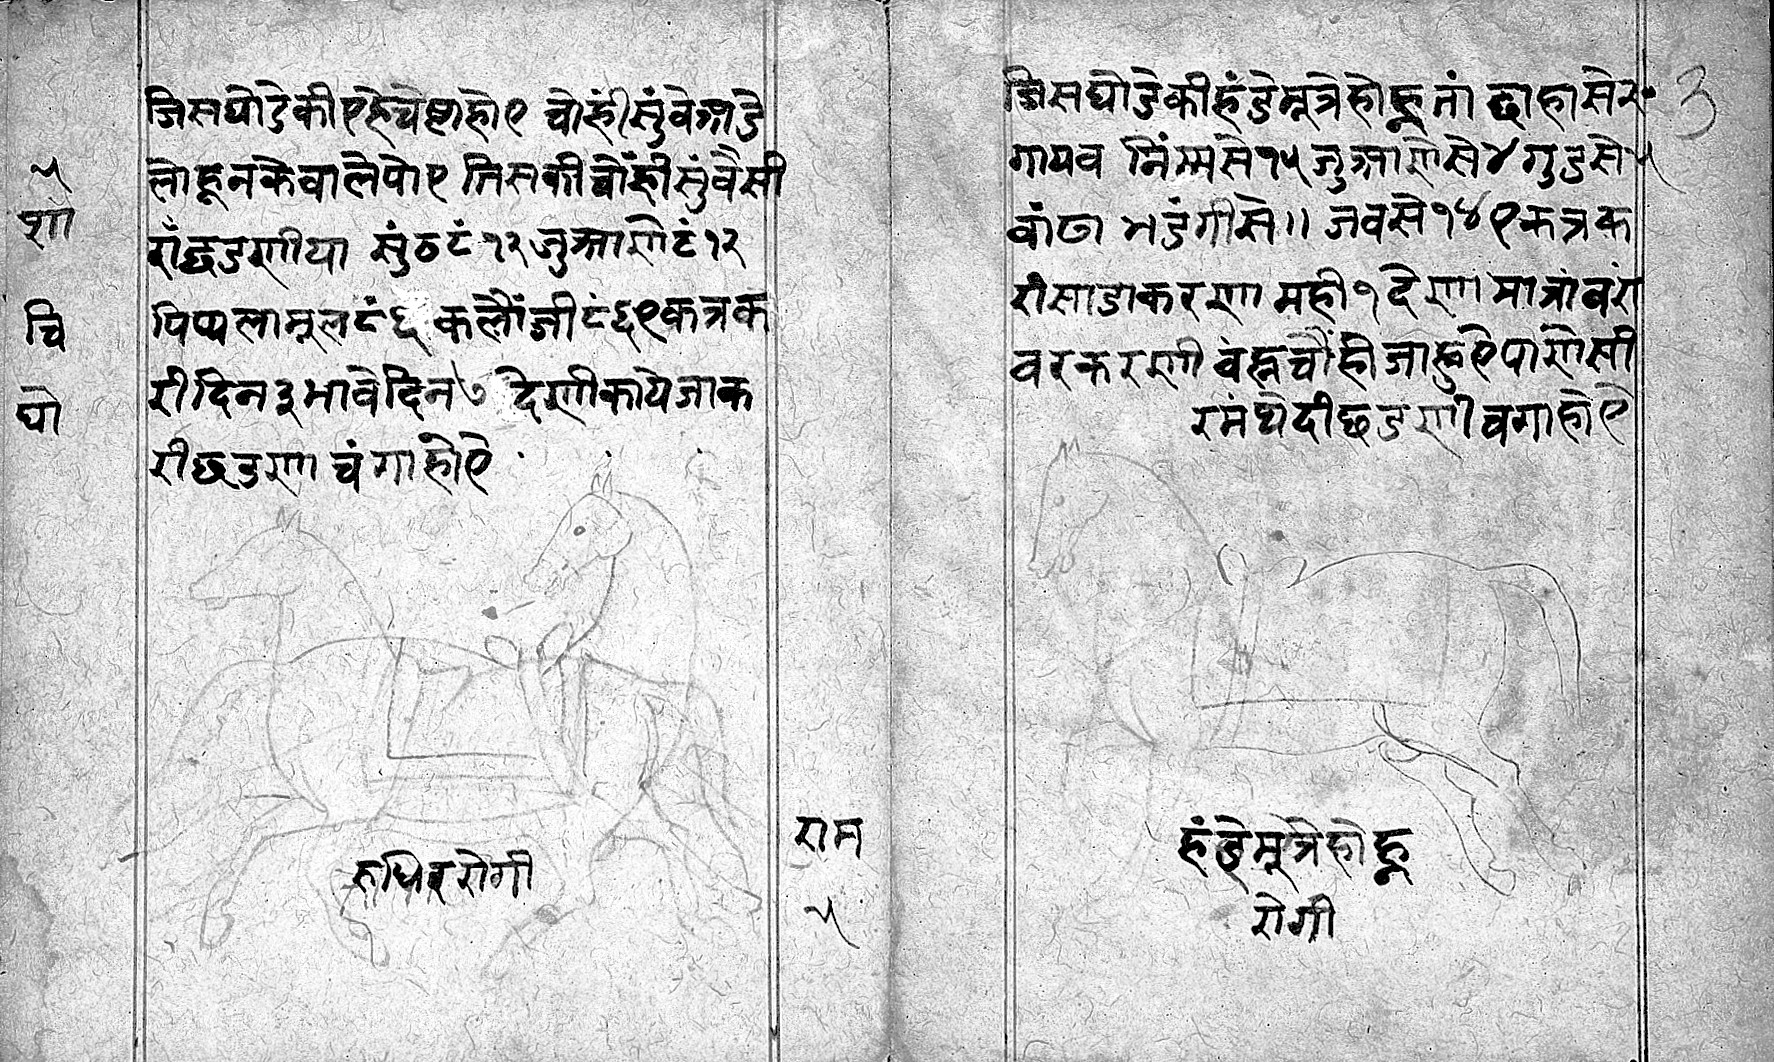 जिसघोडेकीएहेचेष्टाहोए चोहींसुंवेआडे
लोहूनकेवालेपोए तिसकीचोंहींसुंवैसी
रींछडणीया सुंठटं१२जुआणेटं१२
पिप्पलामूलटं६ कलौंजीटं६एकत्रक
रीदिन३भावेदिन७ देणीकायेजाक
रीछडणा चंगाहोऐ
रुधिररोगी
५
शा
चि
घो
राम
५
जिसघोडेकीहंडेमूत्रेहोहूतां छाहासेर
गायव निंम्मसे१५जुआणेसे४गुडसे५
वांठा भडंगीसे॥ जवसे१४एकत्रक
रींसाडाकरणा महीं१देणा मात्रांबरा
वरकरणी वंह्नचौंहीजाहुऐपाणेसी
रमंथेदीछडणी चगाहोऐ
3
हंडेमूत्रेहोहू
रोगी